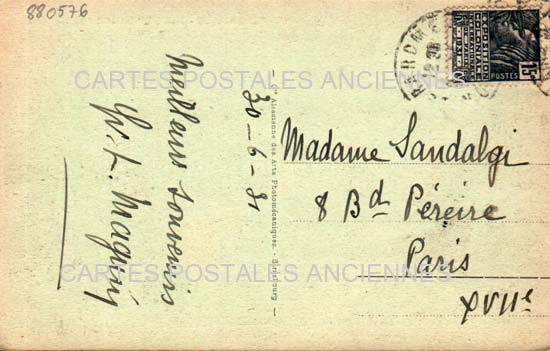 880576
Meilleurs souvenirs
30-6-31
Cie Alsacienne des Arts Photomécaniques. - Strasbourg
Madame Sandalgi
8 Bd Péreire
Paris
XVIIe
EXPOSITION COLONIALE INTERNATIONALE
POSTES
15c
CARTES POSTALES ANCIENNES
CARTES POSTALES ANCIENNES